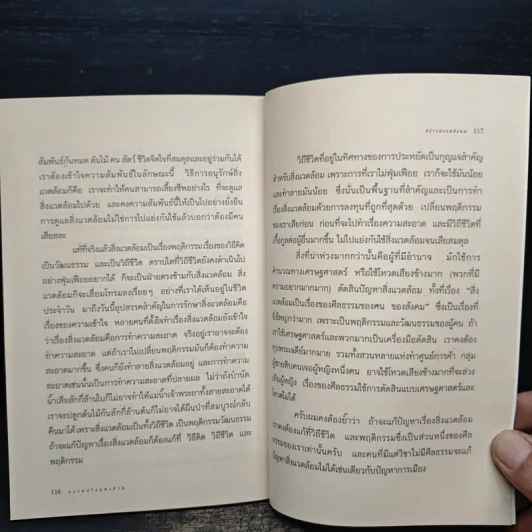 สัมพันธ์กันหมด ต้นไม้ คน สัตว์ ชีวิตจิตใจที่สมดุลและอยู่ร่วมกันได้
เราต้องเข้าใจความสัมพันธ์ในลักษณะนี้ วิธีการอนุรักษ์สิ่ง
แวดล้อมก็คือ เราจะทำให้คนสามารถเลี้ยงชีพอย่างไร ที่จะดูแล
สิ่งแวดล้อมไปด้วย และคงความสัมพันธ์นี้ให้เป็นไปอย่างยั่งยืน
การดูแลสิ่งแวดล้อมไม่ใช่การไปแย่งกันใช้แล้วบอกว่าต้องมีคน
เสียสละ
แท้ที่จริงแล้วสิ่งแวดล้อมเป็นเรื่องพฤติกรรมเรื่องของวิธีคิด
เป็นวัฒนธรรม และเป็นวิถีชีวิต ตราบใดที่วิถีชีวิตยังคงดำเนินไป
อย่างฟุ่มเฟือยอยากได้ ก็จะเป็นฝ่ายตรงข้ามกับสิ่งแวดล้อม สิ่ง
แวดล้อมก็จะเสื่อมโทรมลงเรื่อยๆ อย่างที่เราได้เห็นอยู่ในชีวิต
ประจำวัน มาถึงวันนี้อุปสรรคสำคัญในการรักษาสิ่งแวดล้อมคือ
เรื่องของความเข้าใจ หลายคนที่ตั้งใจทำเรื่องสิ่งแวดล้อมยังเข้าใจ
ว่าเรื่องสิ่งแวดล้อมคือการทำความสะอาด จริงอยู่เราอาจจะต้อง
ทำความสะอาด แต่ถ้าเราไม่เปลี่ยนพฤติกรรมมันก็ต้องทำความ
สะอาดมากขึ้น ซึ่งคนก็ยังทำลายสิ่งแวดล้อมอยู่ และการทำความ
สะอาดเช่นนั้นเป็นการทำความสะอาดที่ปลายผล ไม่ว่าถังบำบัด
น้ำเสียสักกี่ล้านใบก็ไม่อาจทำให้แม่น้ำเจ้าพระยาทั้งสายสะอาดได้
เราจะปลูกต้นไม้กันสักกี่ล้านต้นก็ไม่อาจได้ผืนป่าที่สมบูรณ์กลับ
คืนมาได้ เพราะสิ่งแวดล้อมเป็นทั้งวิถีชีวิต เป็นพฤติกรรมวัฒนธรรม
ถ้าจะแก้ปัญหาเรื่องสิ่งแวดล้อมก็ต้องแก้ที่ วิธีคิด วิถีชีวิต และ
พฤติกรรม
116
117
วิถีชีวิตที่อยู่ในทิศทางของการประหยัดเป็นกุญแจสำคัญ
สำหรับสิ่งแวดล้อม เพราะการที่เราไม่ฟุ่มเฟือย เราก็จะใช้มันน้อย
และทำลายมันน้อย ซึ่งนั่นเป็นพื้นฐานที่สำคัญและเป็นการทำ
เรื่องสิ่งแวดล้อมด้วยการลงทุนที่ถูกที่สุดด้วย เปลี่ยนพฤติกรรม
ของเราเสียก่อน ก่อนที่จะไปทำเรื่องความสะอาด และมีวิถีชีวิตที่
เกื้อกูลต่อผู้อื่นมากขึ้น ไม่ไปแย่งกันใช้สิ่งแวดล้อมจนเสียสมดุล
สิ่งที่น่าห่วงมากกว่านั้นคือผู้ที่มีอำนาจ มักใช้การ
คำนวณทางเศรษฐศาสตร์ หรือใช้โหวตเสียงข้างมาก (พวกที่มี
ความอยากมากมาก) ตัดสินปัญหาสิ่งแวดล้อม ทั้งที่เรื่อง “สิ่ง
แวดล้อมเป็นเรื่องของศีลธรรมของคน ของสังคม” ซึ่งเป็นเรื่องที่
ยิ่งใหญ่กว่ามาก เพราะเป็นพฤติกรรมและวัฒนธรรมของผู้คน ถ้า
เราใช้เศรษฐศาสตร์และพวกมากเป็นเครื่องมือตัดสิน เราคงต้อง
ทุบพระเจดีย์มากมาย รวมทั้งสวนหลายแห่งทำศูนย์การค้า กลุ่ม
ผู้ชายสิบคนเจอผู้หญิงหนึ่งคน อาจใช้โหวตเสียงข้างมากที่จะล่วง
เกินผู้หญิง เรื่องของศีลธรรมใช้การตัดสินแบบเศรษฐศาสตร์และ
โหวตไม่ได้
ครับผมคงต้องย้ำว่า ถ้าจะแก้ปัญหาเรื่องสิ่งแวดล้อม
เราคงต้องแก้ที่วิถีชีวิต และพฤติกรรมซึ่งเป็นส่วนหนึ่งของศีล
ธรรมของเราเท่านั้นครับ และคนที่มีแต่วิชาไม่มีศีลธรรมจะแก้
ปัญหาสิ่งแวดล้อมไม่ได้เช่นเดียวกับปัญหาการเมือง